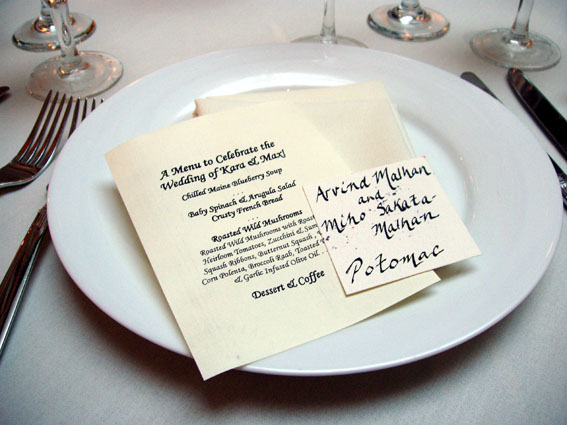 A Menu to Celebrate the
Wedding of Kara & Max!
Chilled Maine Blueberry Soup
Baby Spinach & Arugula Salad
Crusty French Bread
Roasted Wild Mushrooms
Roasted Wild Mushrooms with Roast
Heirloom Tomatoes, Zucchini & Sum
Squash Ribbons, Butternut Squash
Corn Polenta, Broccoli Raab, Toasted
& Garlic Infused Olive Oil
Dessert & Coffee
Arvind Malhan
and
Miho Sakata
Malhan
Potomac